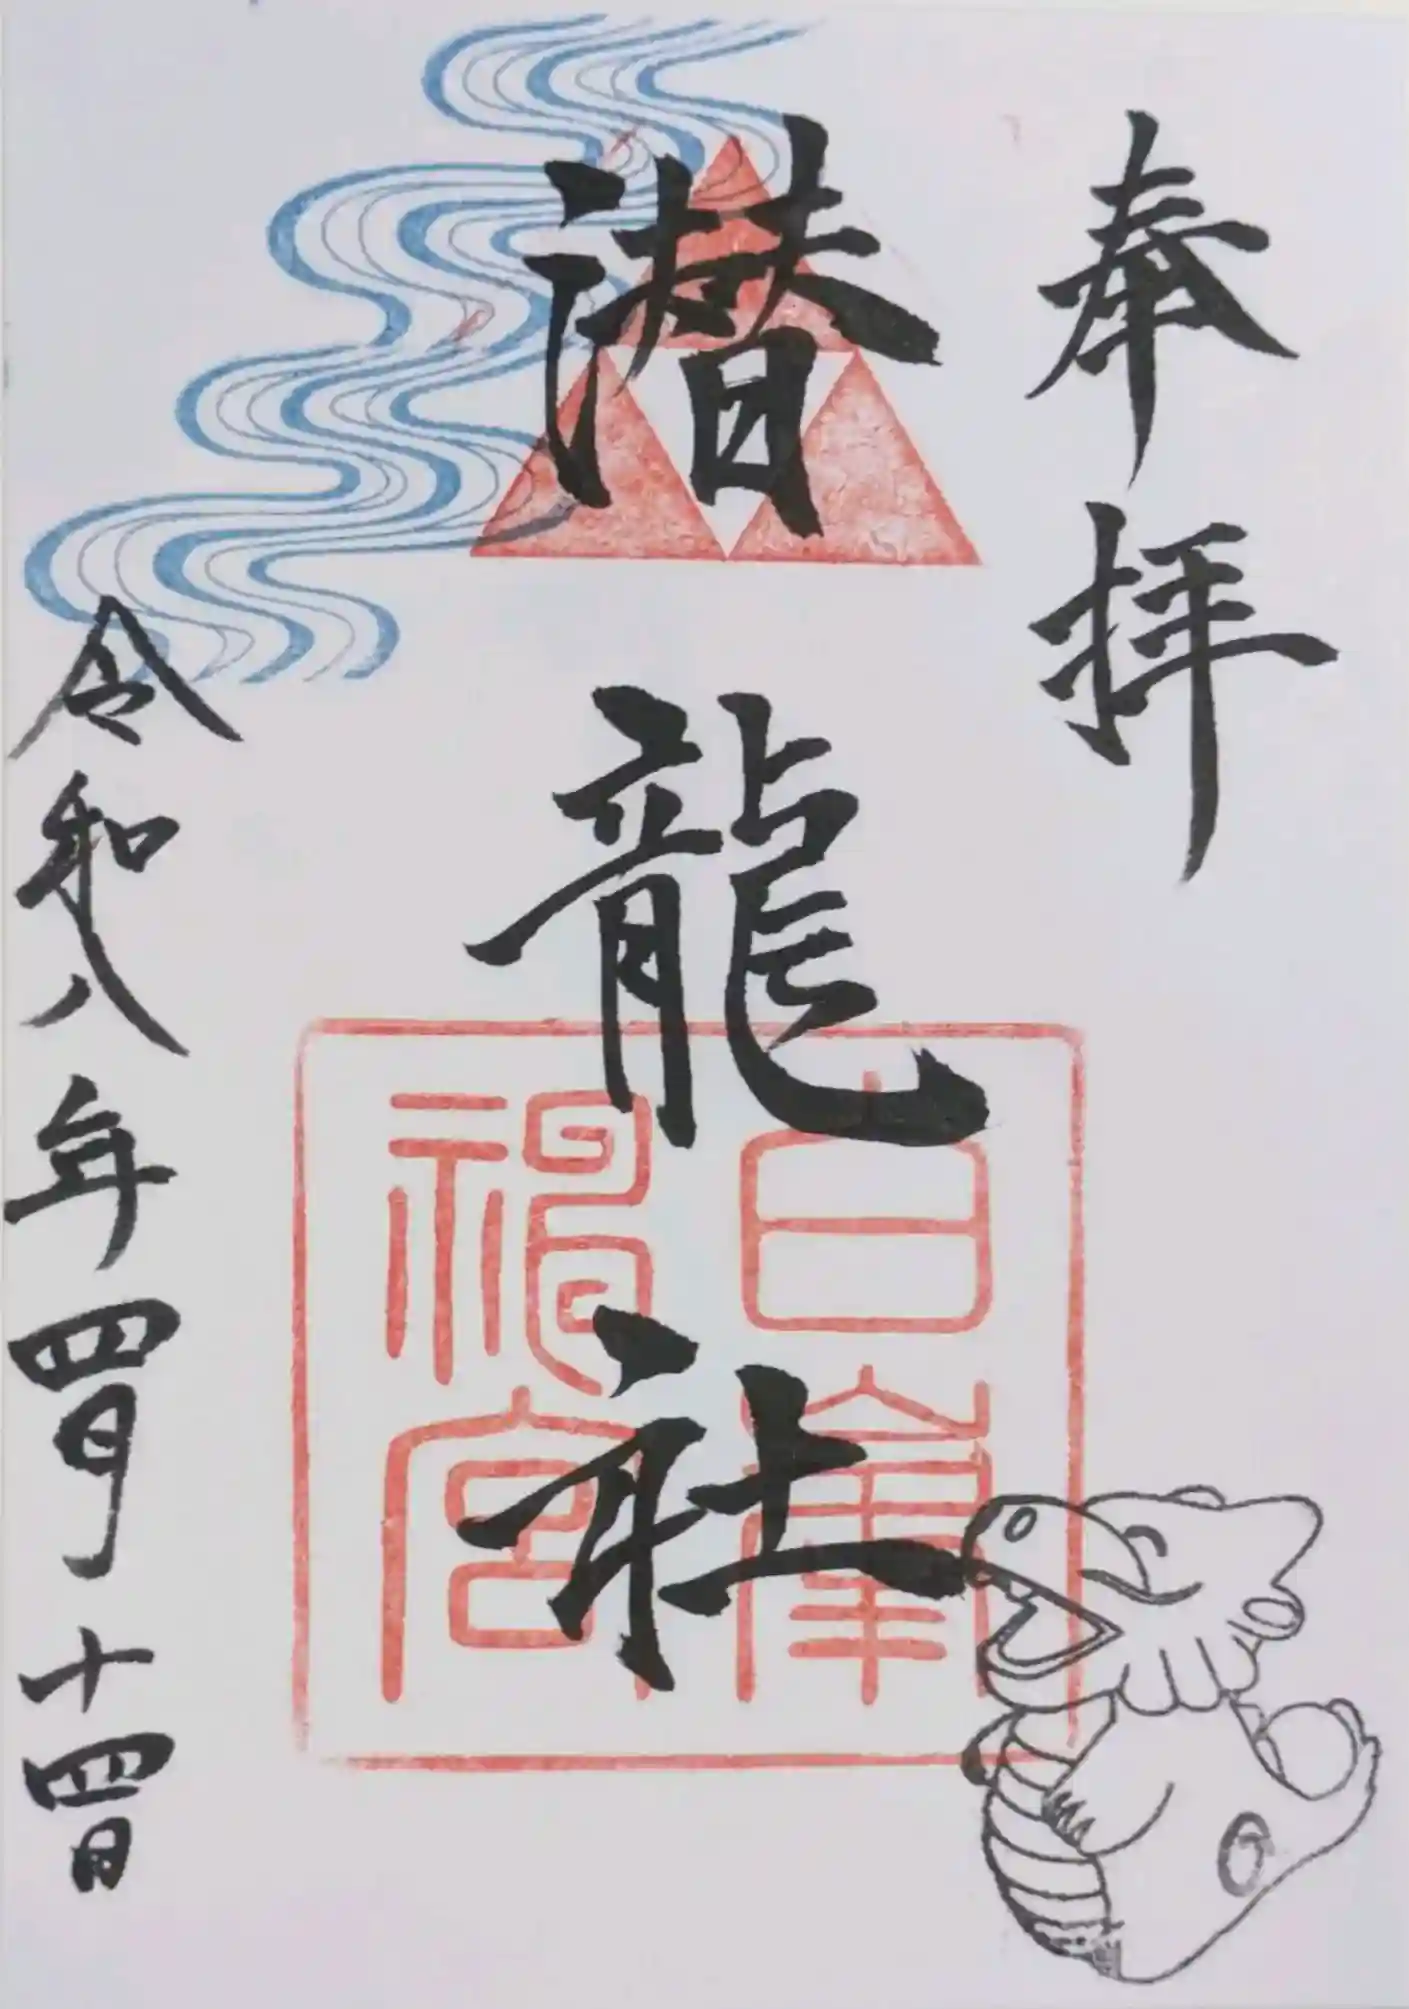 奉拝
潜龍社
白峯神宮
令和八年四月十四日